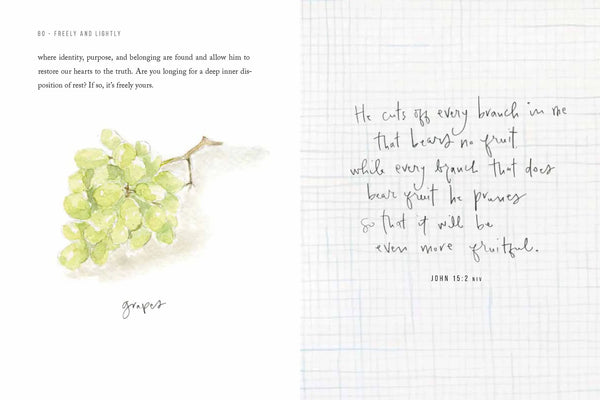 60 - FREELY AND LIGHTLY
where identity, purpose, and belonging are found and allow him to
restore our hearts to the truth. Are you longing for a deep inner dis-
position of rest? If so, it's freely yours.
grapes
He cuts off every branch in me
that bears no fruit
while every branch that does
bear fruit he prunes
so that it will be
even more fruitful.
JOHN 15:2 NIV